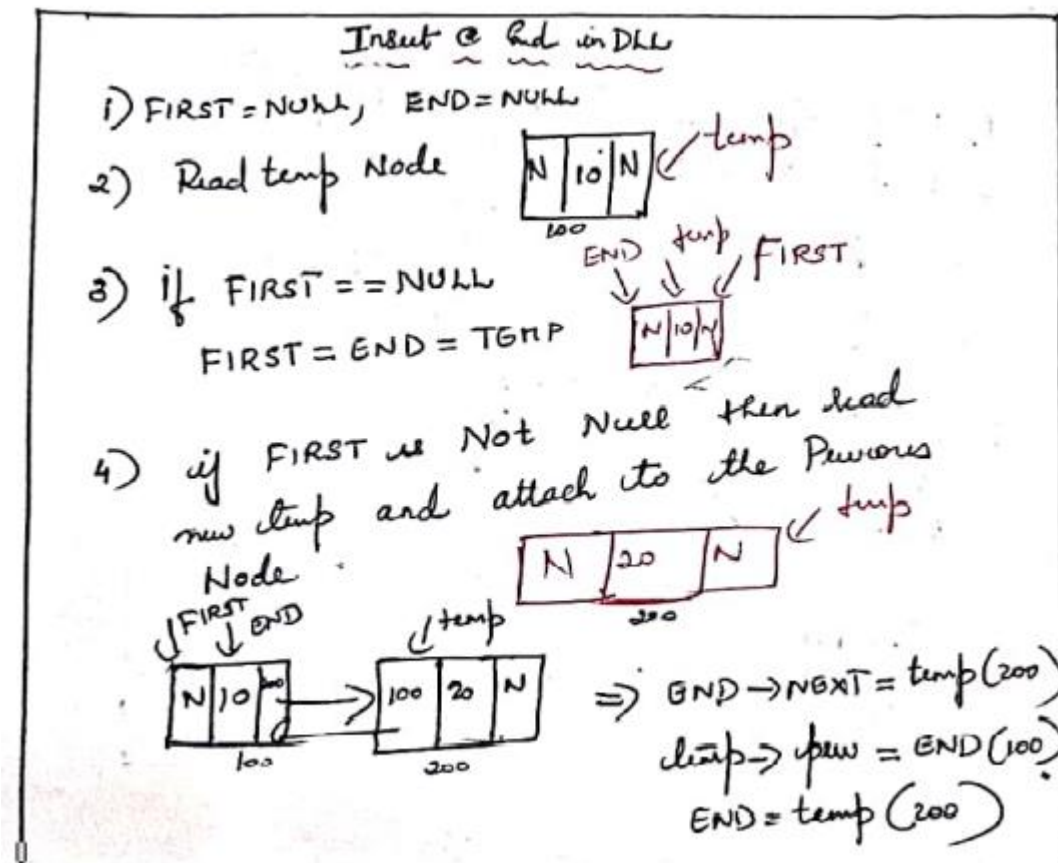 Insert @ End in DLL
1) FIRST = NULL, END = NULL
2) Read temp Node
N 10 N
temp
100
3) if FIRST == NULL
FIRST = END = TEMP
END temp FIRST.
N 10 N
4) if FIRST is Not Null then read
new temp and attach to the Previous
Node.
N 20 N
temp
200
FIRST END temp
N 10 200 100 20 N
100 200
=> END → NEXT = temp (200)
temp → prev = END (100)
END = temp (200)